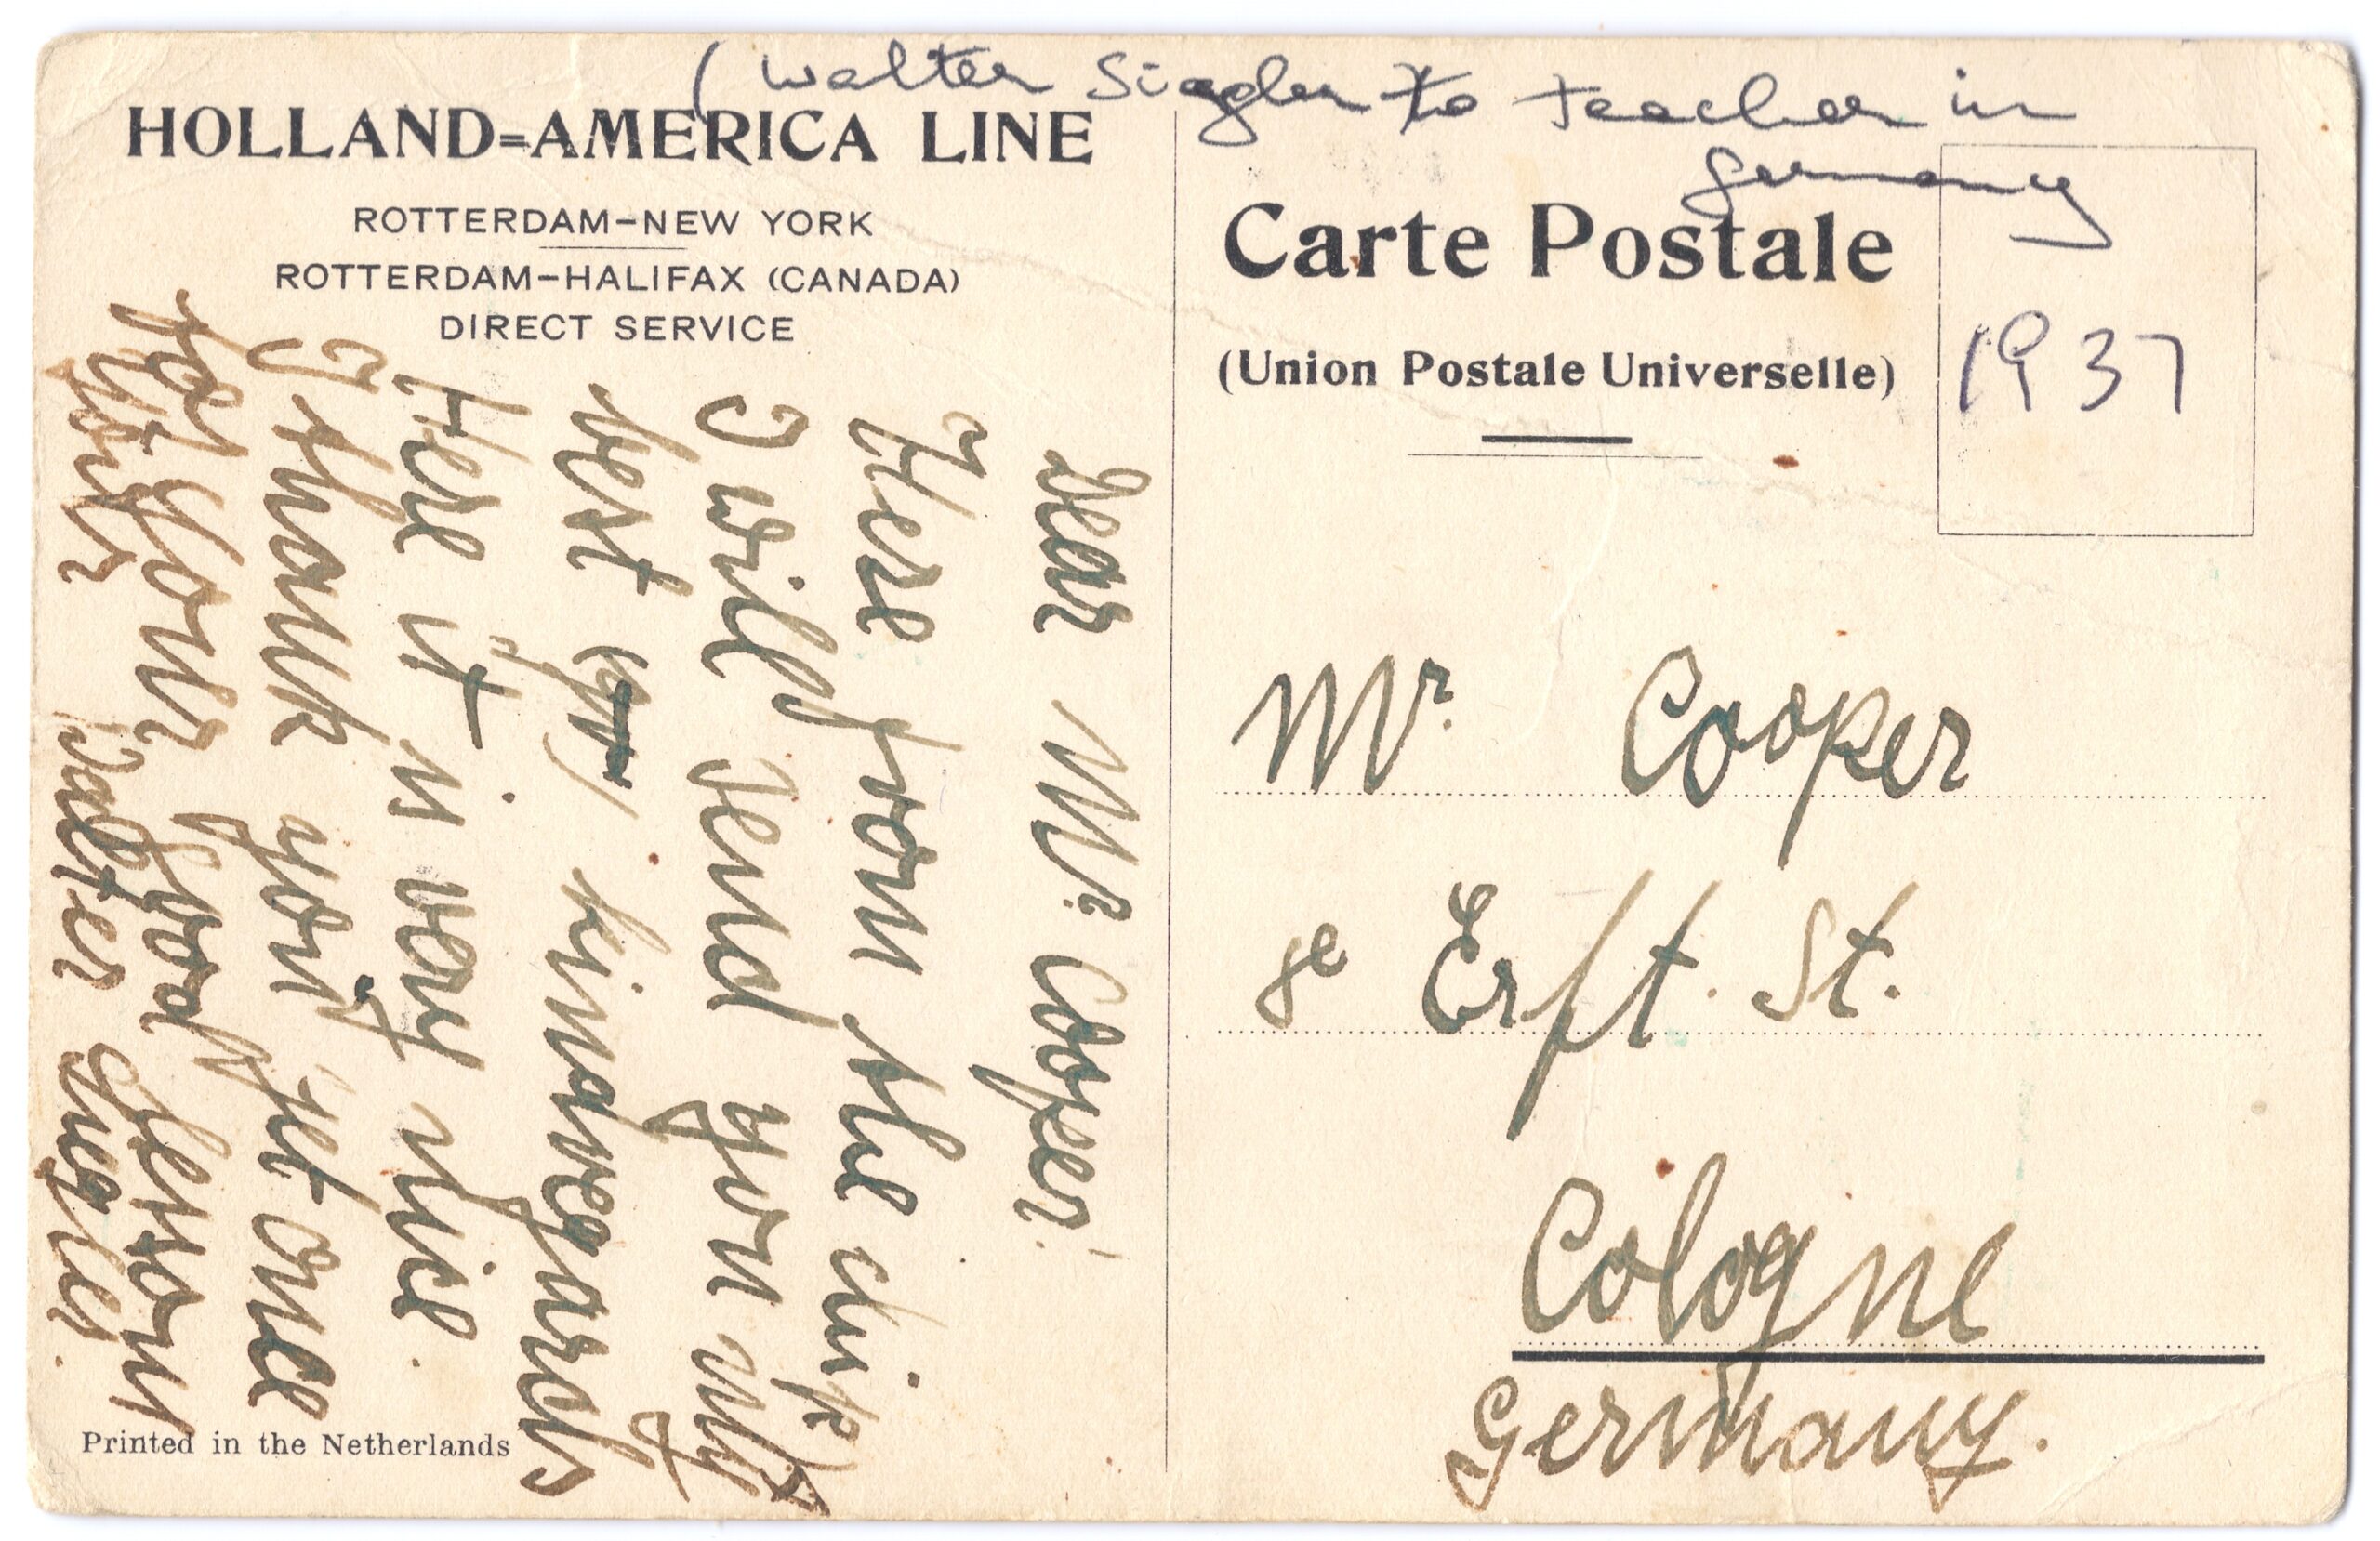 (Walter Siegler to teacher in
Germany
HOLLAND=AMERICA LINE
ROTTERDAM–NEW YORK
ROTTERDAM–HALIFAX (CANADA)
DIRECT SERVICE
Dear Mr. Cooper!
Here from the ship
I will send you my
best kindregards
Here it is very nice.
I thank you yet once
for Your good lessons
Your Walter Siegler.
Printed in the Netherlands
Carte Postale
(Union Postale Universelle)
1937
Mr. Cooper
8 Erft. St.
Cologne
Germany.